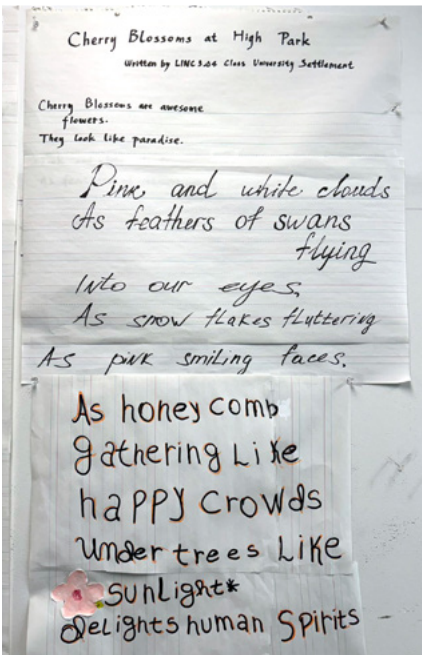 Cherry Blossoms at High Park
Written by LINC 3.04 Class University Settlement
Cherry Blossoms are awesome
flowers.
They look like paradise.
Pink and white clouds
As feathers of swans
flying
Into our eyes,
As snow flakes fluttering
As pink smiling faces.
As honey comb
gathering Like
happy crowds
under trees Like
sunlight*
delights human Spirits